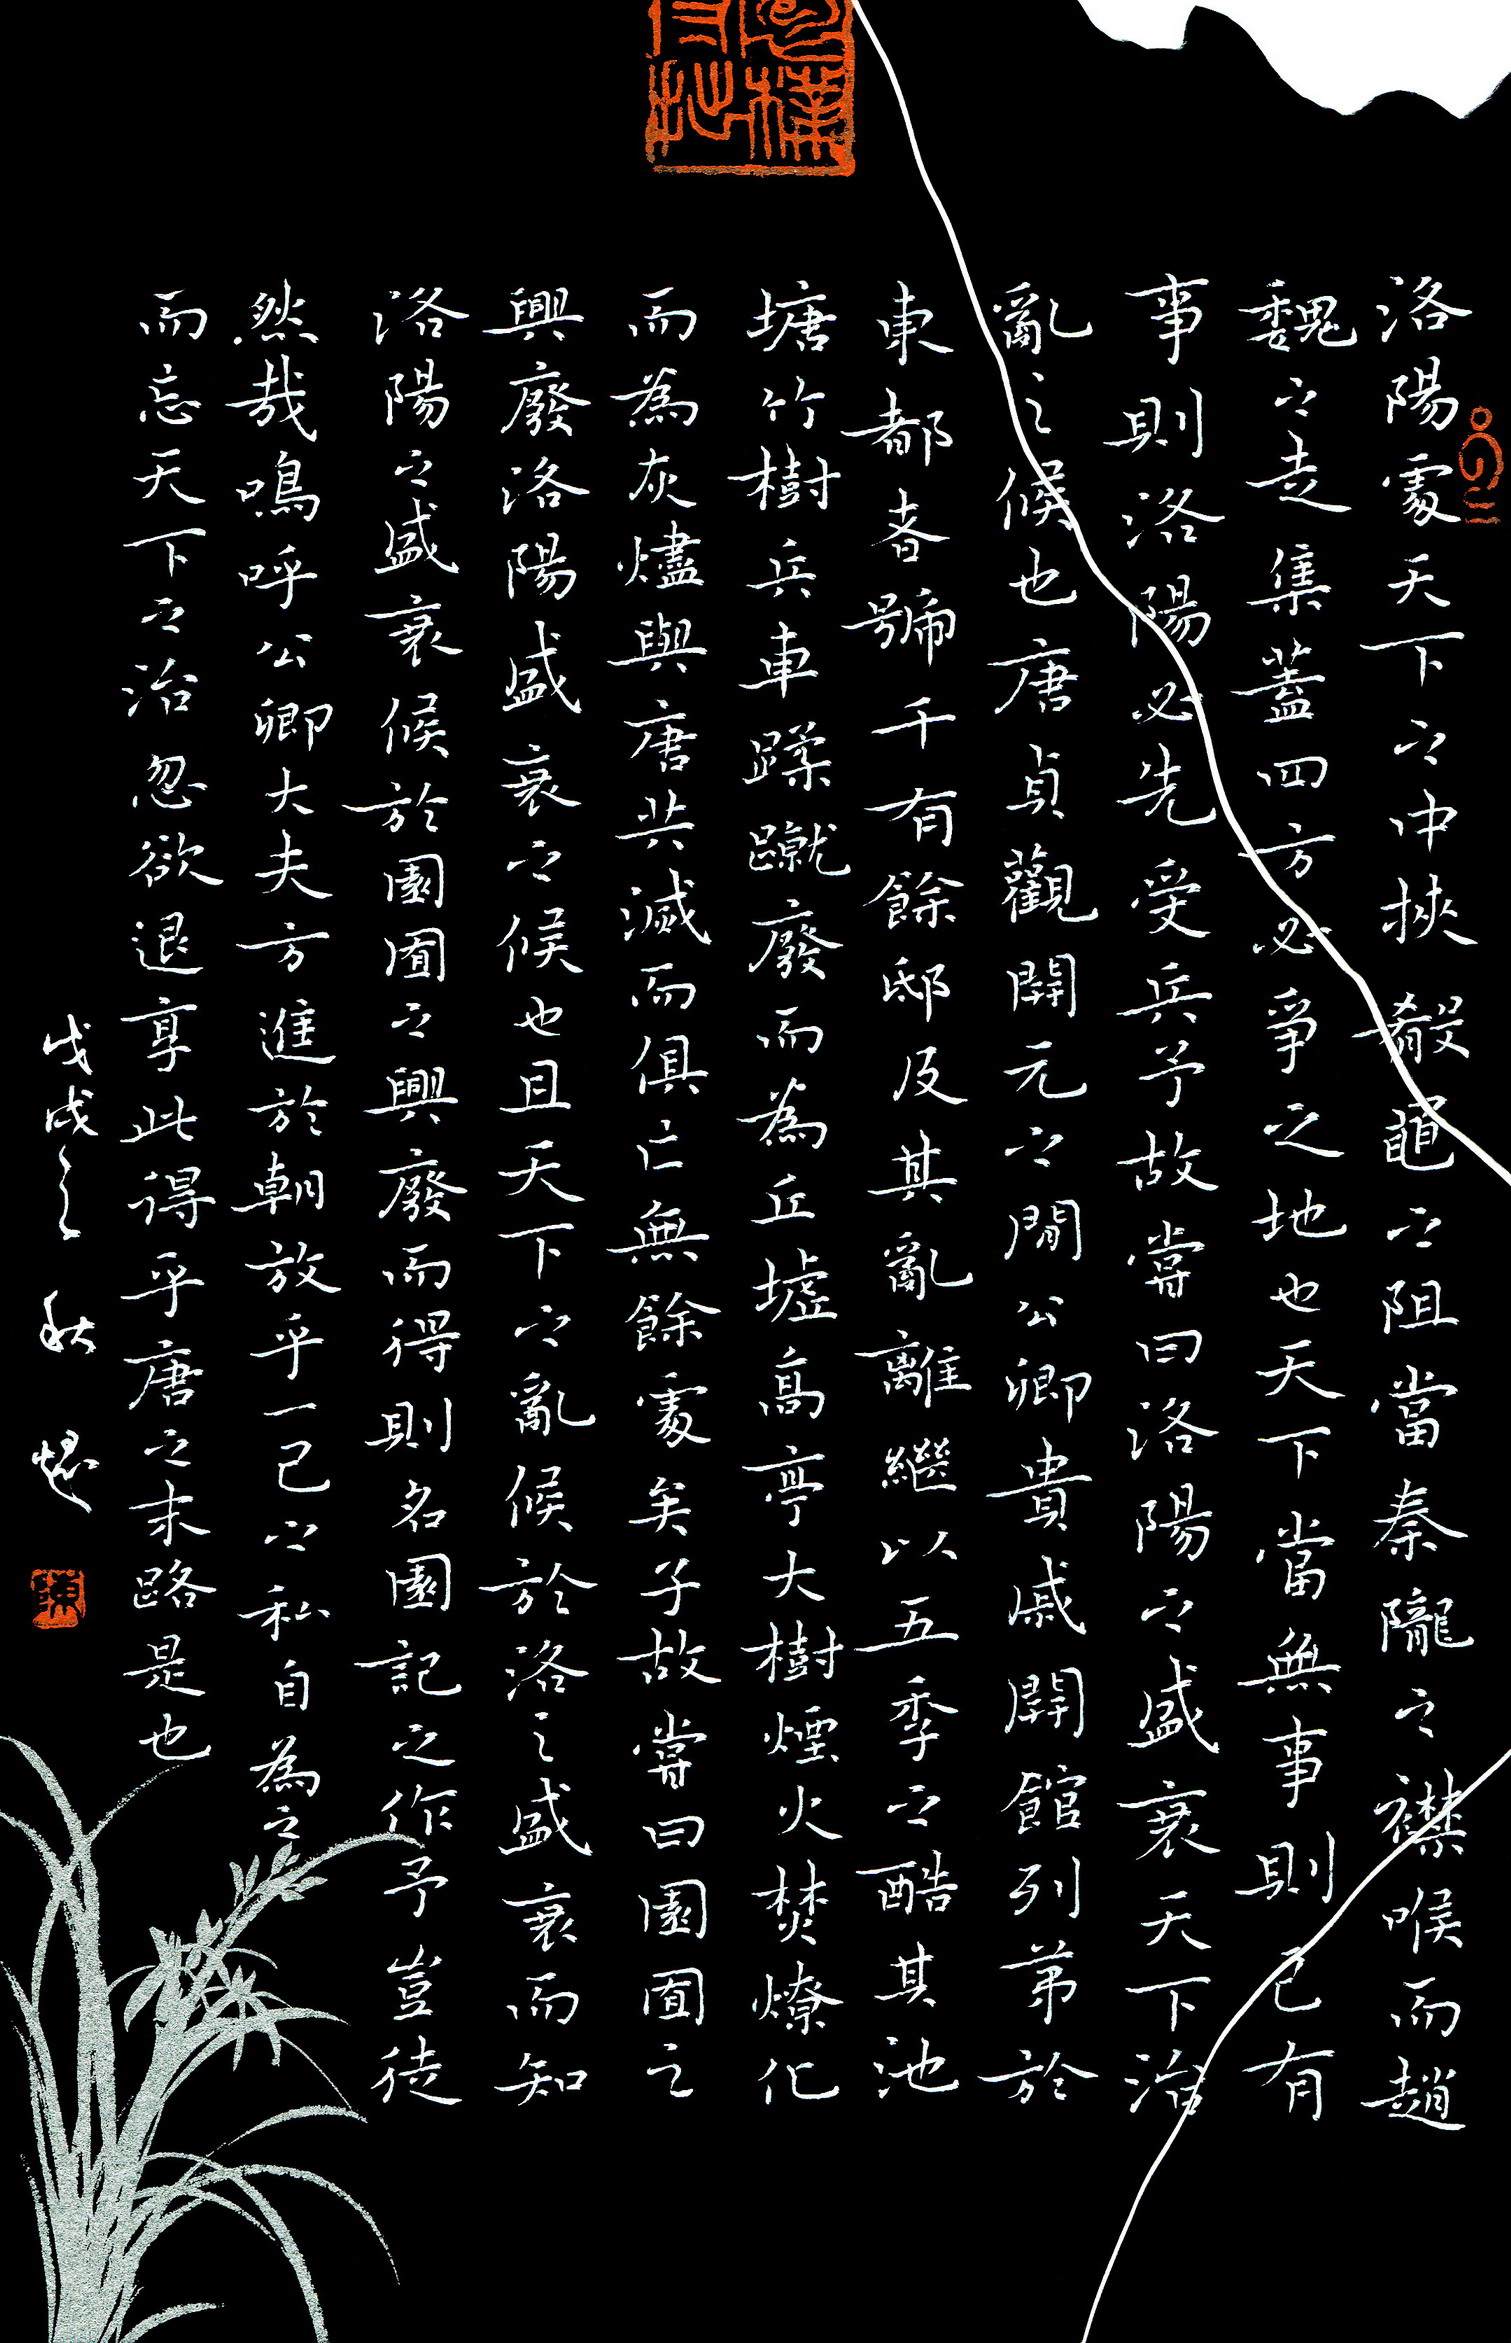 洛陽處天下之中挾殽黽之阻當秦隴之襟喉而趙
魏之走集蓋四方必爭之地也天下當無事則已有
事則洛陽必先受兵予故嘗曰洛陽之盛衰天下治
亂之候也唐貞觀開元之間公卿貴戚開館列第於
東都者號千有餘邸及其亂離繼以五季之酷其池
塘竹樹兵車蹂蹴廢而為丘墟高亭大樹煙火焚燎化
而為灰燼與唐共滅而俱亡無餘處矣子故嘗曰園囿之
興廢洛陽盛衰之候也且天下之亂候於洛之盛衰而知
洛陽之盛衰候於園囿之興廢而得則名園記之作予豈徒
然哉嗚呼公卿大夫方進於朝放乎一己之私自為之
而忘天下之治忽欲退享此得乎唐之末路是也
戊戌之秋
陳